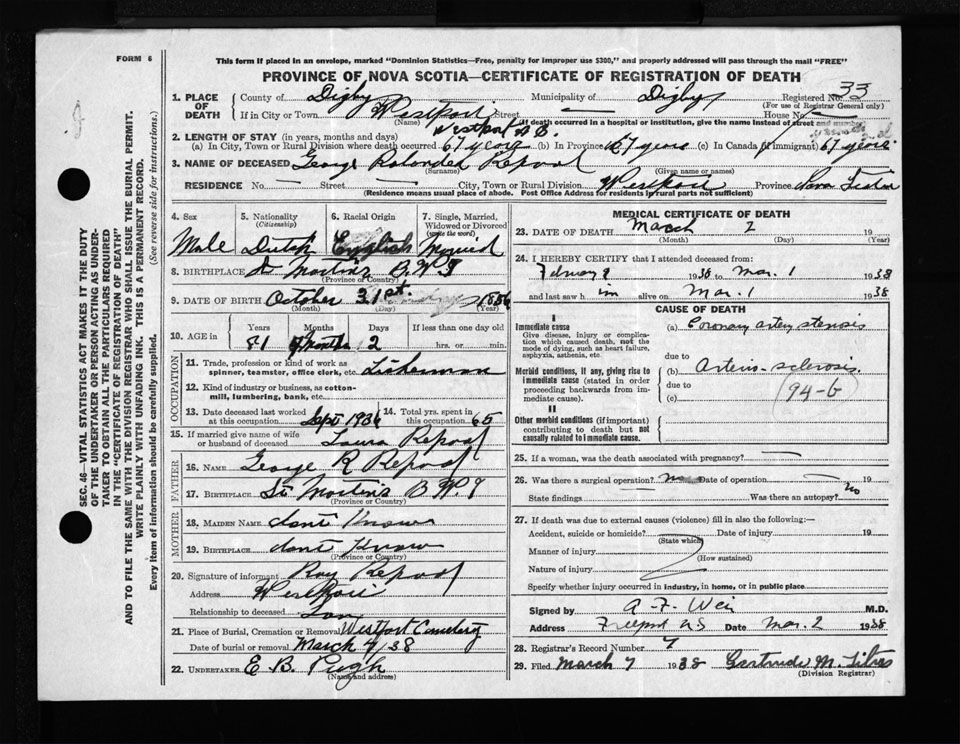 FORM 6
This form if placed in an envelope, marked "Dominion Statistics—Free, penalty for improper use $300," and properly addressed will pass through the mail "FREE"
PROVINCE OF NOVA SCOTIA—CERTIFICATE OF REGISTRATION OF DEATH
SEC. 46—VITAL STATISTICS ACT MAKES IT THE DUTY
OF THE UNDERTAKER OR PERSON ACTING AS UNDER-
TAKER TO OBTAIN ALL THE PARTICULARS REQUIRED
IN THE "CERTIFICATE OF REGISTRATION OF DEATH"
AND TO FILE THE SAME WITH THE DIVISION REGISTRAR WHO SHALL ISSUE THE BURIAL PERMIT.
WRITE PLAINLY WITH UNFADING INK. THIS IS A PERMANENT RECORD.
Every item of information should be carefully supplied. (See reverse side for instructions.)
1. PLACE OF DEATH County of Digby Municipality of Digby Registered No. 33
(For use of Registrar General only)
If in City or Town Westport Street — House No.
(Name) (If death occurred in a hospital or institution, give the name instead of street and number)
2. LENGTH OF STAY (in years, months and days) Westport N.S.
(a) In City, Town or Rural Division where death occurred 67 years (b) In Province 67 years (c) In Canada (if immigrant) 67 years
3. NAME OF DECEASED George
(Surname) (Given name or names)
RESIDENCE No. — Street — City, Town or Rural Division Westport Province Nova Scotia
(Residence means usual place of abode. Post Office Address for residents in rural parts not sufficient)
4. Sex 5. Nationality (Citizenship) 6. Racial Origin 7. Single, Married, Widowed or Divorced (write the word)
Male Dutch English
8. BIRTHPLACE St Martins B.W.I
(Province or Country)
9. DATE OF BIRTH October 31st 1856
(Month) (Day) (Year)
10. AGE in Years Months Days If less than one day old
81 4 Months 2 hrs. or min.
OCCUPATION
11. Trade, profession or kind of work as spinner, teamster, office clerk, etc. Fisherman
12. Kind of industry or business, as cotton-mill, lumbering, bank, etc.
13. Date deceased last worked at this occupation Sept 1936 14. Total yrs. spent in this occupation 65
15. If married give name of wife or husband of deceased Laura
FATHER
16. NAME George R
17. BIRTHPLACE St Martins B W I
(Province or Country)
MOTHER
18. MAIDEN NAME dont Know
19. BIRTHPLACE dont Know
(Province or Country)
20. Signature of informant Roy
Address Westport
Relationship to deceased Son
21. Place of Burial, Cremation or Removal Westport Cemetery
Date of burial or removal March 4/38
22. UNDERTAKER E B. Pugh
(Name and address)
MEDICAL CERTIFICATE OF DEATH
23. DATE OF DEATH March 2 19
(Month) (Day) (Year)
24. I HEREBY CERTIFY that I attended deceased from:
1938 to Mar. 1 1938
and last saw him alive on Mar. 1 1938
CAUSE OF DEATH
I
Immediate cause
Give disease, injury or complication which caused death, not the mode of dying, such as heart failure, asphyxia, asthenia, etc.
(a) Coronary artery stenosis
due to
Morbid conditions, if any, giving rise to immediate cause (stated in order proceeding backwards from immediate cause).
(b) Arterio-sclerosis.
due to
(c) (94-b)
II
Other morbid conditions (if important) contributing to death but not causally related to immediate cause.
25. If a woman, was the death associated with pregnancy? —
26. Was there a surgical operation? no Date of operation — 19
State findings — Was there an autopsy? no
27. If death was due to external causes (violence) fill in also the following:
Accident, suicide or homicide? Date of injury 19
(State which)
Manner of injury
(How sustained)
Nature of injury
Specify whether injury occurred in industry, in home, or in public place
Signed by A. F. Weir M.D.
Address Freeport NS Date Mar. 2 1938
28. Registrar's Record Number 7
29. Filed March 7 1938 Gertrude M. Titus
(Division Registrar)